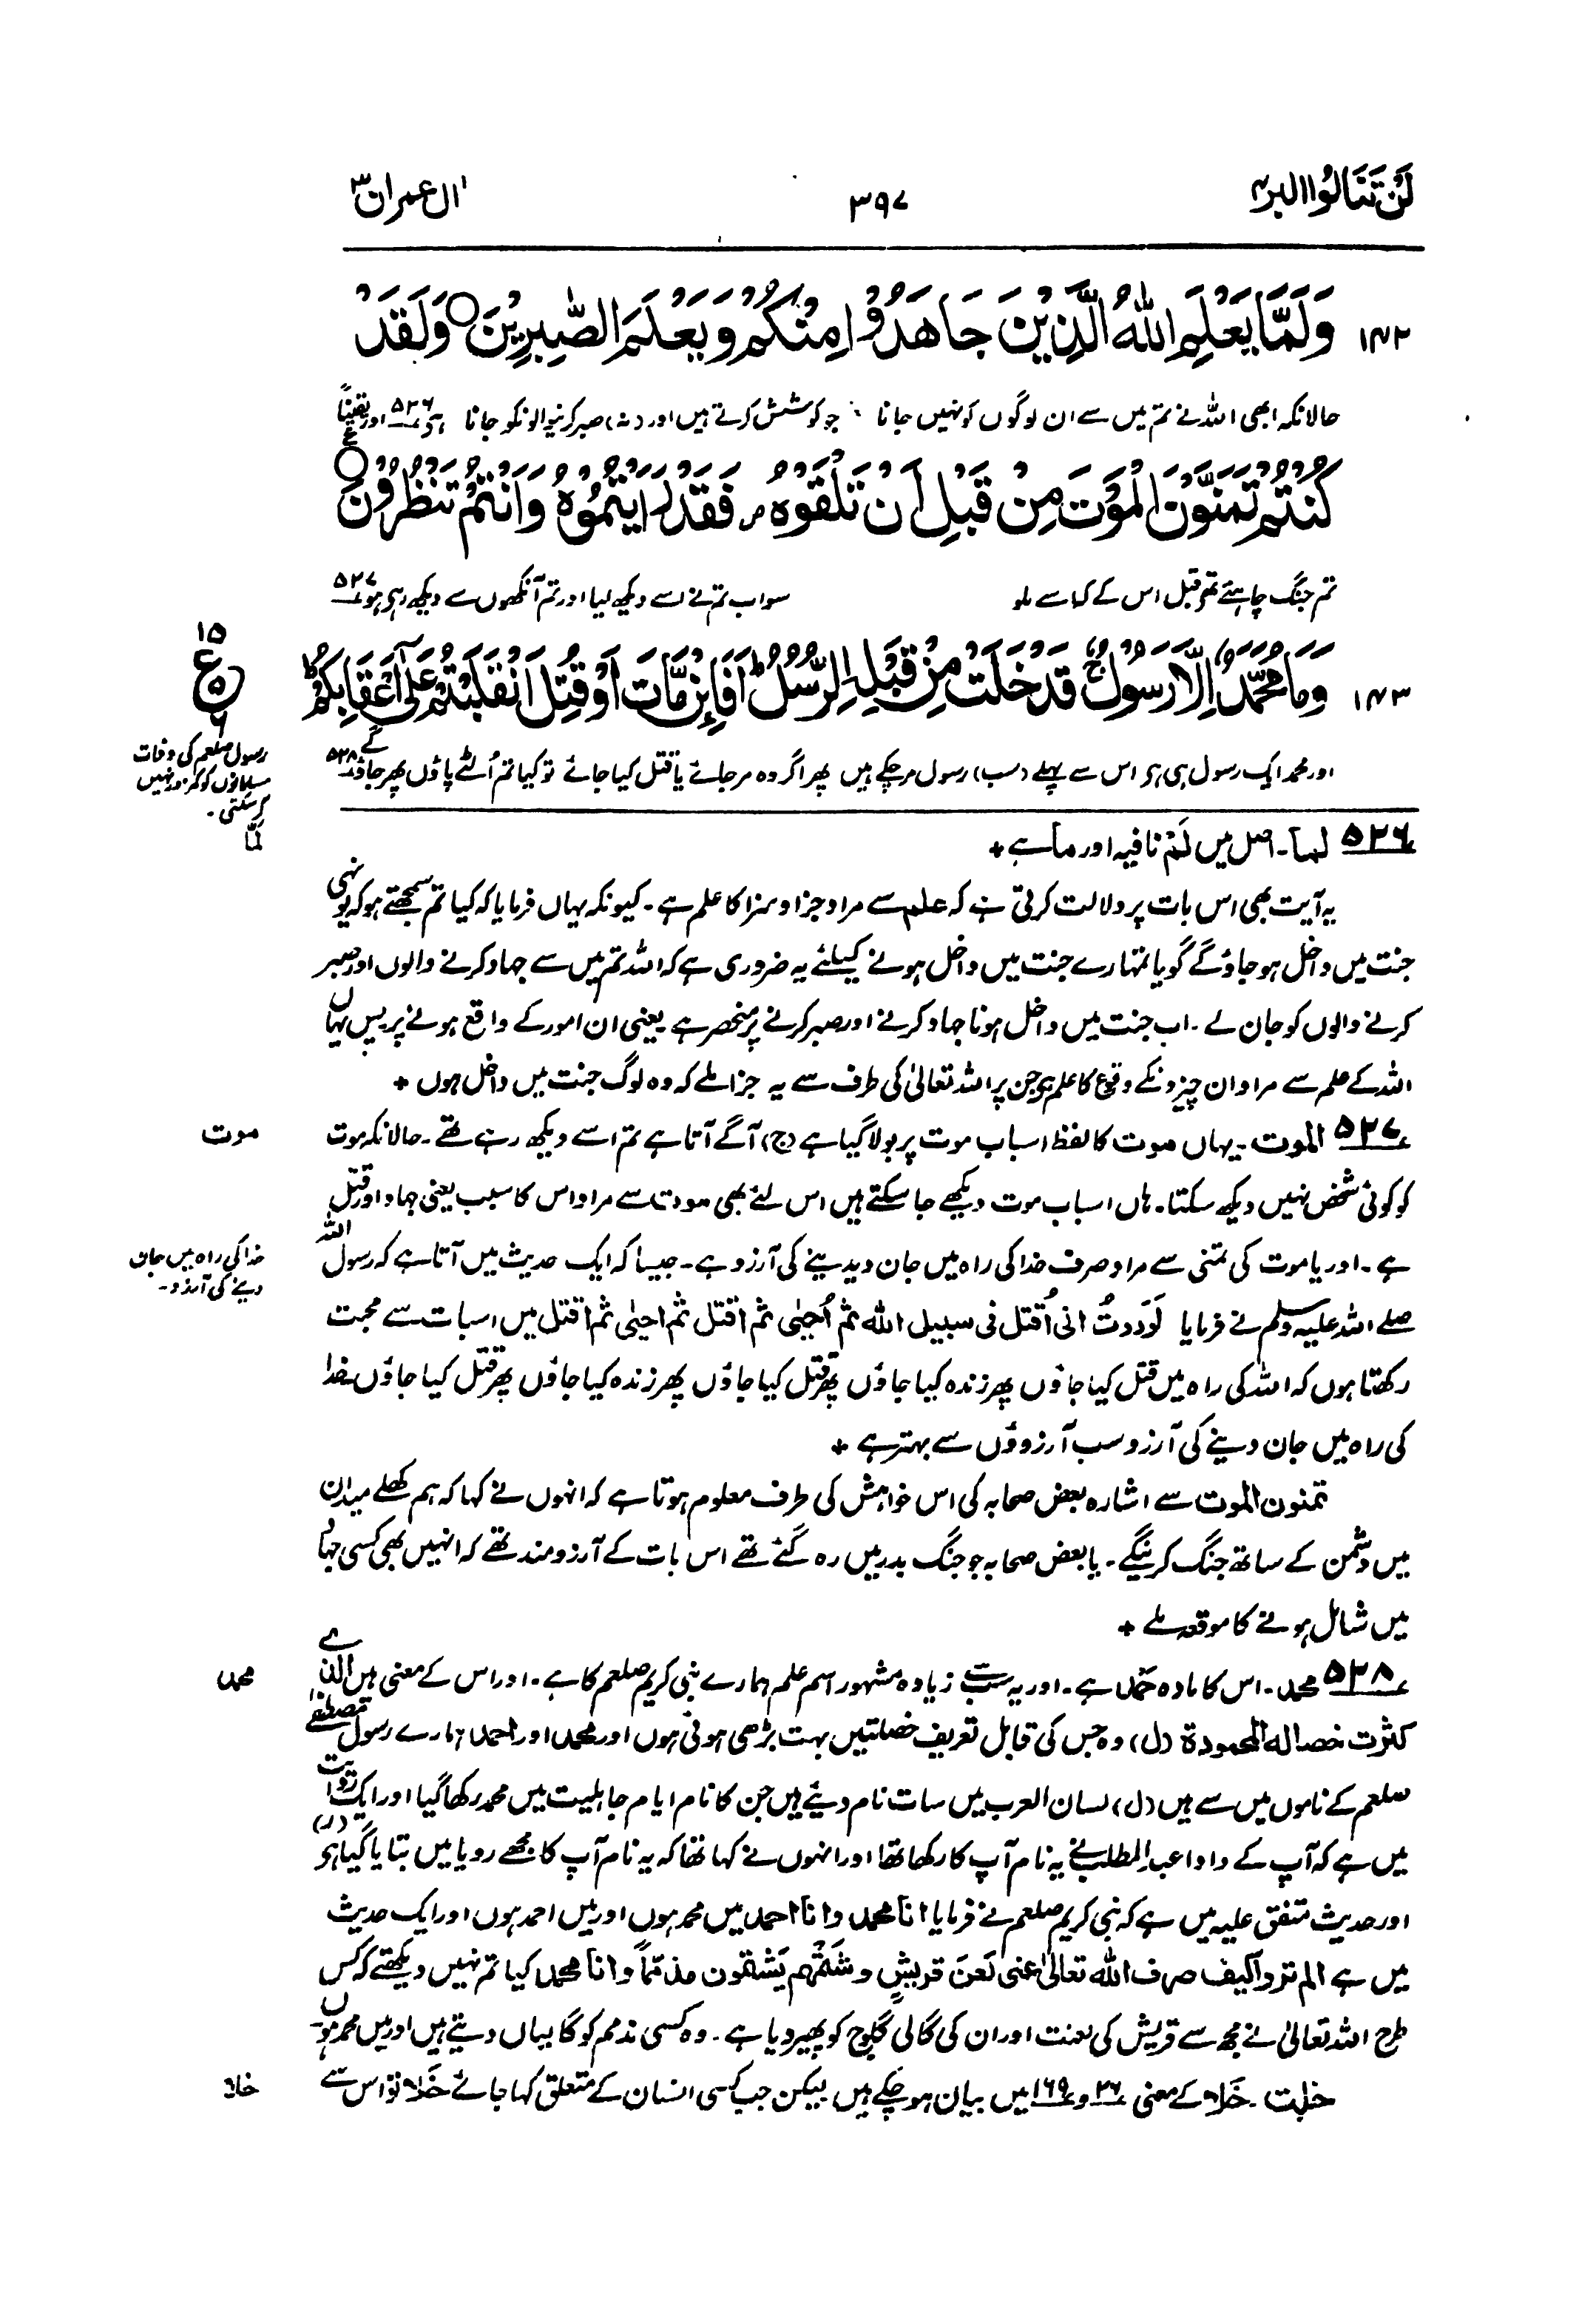 لَنْ تَنَالُوا البر ۴
۳۹۷
اٰل عمران ۳
وَلَمَّا يَعْلَمِ اللّٰهُ الَّذِيْنَ جَاهَدُوْا مِنْكُمْ وَيَعْلَمَ الصّٰبِرِيْنَ ○ وَلَقَدْ
۱۴۲
حالانکہ ابھی اللہ نے تم میں سے ان لوگوں کو نہیں جانا جو کوشش کرتے ہیں اور (نہ) صبر کرنیوالونکو جانا ہے ۵۲۶ اور یقیناً
كُنْتُمْ تَمَنَّوْنَ الْمَوْتَ مِنْ قَبْلِ اَنْ تَلْقَوْهُ ص فَقَدْ رَاَيْتُمُوْهُ وَاَنْتُمْ تَنْظُرُوْنَ ○ ع
تم جنگ چاہتے تھے قبل اس کے کہ اس سے ملو سو اب تم نے اسے دیکھ لیا اور تم آنکھوں سے دیکھ رہے ہو ۵۲۷
۱۵
ع
۵
۶
وَمَا مُحَمَّدٌ اِلَّا رَسُوْلٌ ج قَدْ خَلَتْ مِنْ قَبْلِهِ الرُّسُلُ ط اَفَا۟ئِنْ مَّاتَ اَوْ قُتِلَ انْقَلَبْتُمْ عَلٰٓى اَعْقَابِكُمْ ط
۱۴۳
اور محمد ایک رسول ہی ہے اس سے پہلے (سب) رسول مرچکے ہیں پھر اگر وہ مر جائے یا قتل کیا جائے تو کیا تم اُلٹے پاؤں پھر جاؤ گے ۵۲۸
رسول صلعم کی وفات
مسلمانوں کو کمزور نہیں
کر سکتی۔
لَمَّا
۵۲۶ لما۔ اصل میں لَمْ نافیہ اور ما ہے +
یہ آیت بھی اس بات پر دلالت کرتی ہے کہ علم سے مراد جزا و سزا کا علم ہے۔ کیونکہ یہاں فرمایا کہ کیا تم سمجھتے ہو کہ یونہی
جنت میں داخل ہو جاؤ گے گویا تمہارے جنت میں داخل ہونے کیلئے یہ ضروری ہے کہ اللہ تم میں سے جہاد کرنے والوں اور صبر
کرنے والوں کو جان لے۔ اب جنت میں داخل ہونا جہاد کرنے اور صبر کرنے پر منحصر ہے یعنی ان امور کے واقع ہونے پر پس یہاں
اللہ کے علم سے مراد ان چیزونکے وقوع کا علم ہے جن پر اللہ تعالیٰ کی طرف سے یہ جزا ملے کہ وہ لوگ جنت میں داخل ہوں +
۵۲۷ الموت۔ یہاں موت کا لفظ اسباب موت پر بولا گیا ہے (ج) آگے آتا ہے تم اسے دیکھ رہے تھے۔ حالانکہ موت
موت
کو کوئی شخص نہیں دیکھ سکتا۔ ہاں اسباب موت دیکھے جا سکتے ہیں اس لئے بھی موت سے مراد اس کا سبب یعنی جہاد اور قتل
ہے۔ اور یا موت کی تمنی سے مراد صرف خدا کی راہ میں جان دیدینے کی آرزو ہے۔ جیسا کہ ایک حدیث میں آتا ہے کہ رسول اللہ
خدا کی راہ میں جان
دینے کی آرزو۔
صلے اللہ علیہ وسلم نے فرمایا لَوَدِدتُ انی اُقتل فی سبیل اللہ ثم اُحیٰی ثم اقتل ثم احیٰی ثم اقتل میں اسبات سے محبت
رکھتا ہوں کہ اللہ کی راہ میں قتل کیا جاؤں پھر زندہ کیا جاؤں پھر قتل کیا جاؤں پھر زندہ کیا جاؤں پھر قتل کیا جاؤں خدا
کی راہ میں جان دینے کی آرزو سب آرزوؤں سے بہتر ہے +
تمنون الموت سے اشارہ بعض صحابہ کی اس خواہش کی طرف معلوم ہوتا ہے کہ انہوں نے کہا کہ ہم کھلے میدان
میں دشمن کے ساتھ جنگ کرینگے۔ یا بعض صحابہ جو جنگ بدر میں رہ گئے تھے اس بات کے آرزومند تھے کہ انہیں بھی کسی جہاد
میں شامل ہونے کا موقعہ ملے +
۵۲۸ محمد۔ اس کا مادہ حَمد ہے۔ اور یہ سب سے زیادہ مشہور اسم علم ہمارے نبی کریم صلعم کا ہے۔ اور اس کے معنی ہیں الذی
محمد
کثرت خصالہ المحمودۃ (ل) وہ جس کی قابل تعریف خصلتیں بہت بڑھی ہوئی ہوں اور محمد اور احمد ہمارے رسول مصطفےٰ
صلعم کے ناموں میں سے ہیں (ل) لسان العرب میں سات نام دیئے ہیں جن کا نام ایام جاہلیت میں محمد رکھا گیا اور ایک روایت
میں ہے کہ آپ کے دادا عبد المطلب نے یہ نام آپ کا رکھا تھا اور انہوں نے کہا تھا کہ یہ نام آپ کا مجھے رویا میں بتایا گیا ہے (ر)
اور حدیث متفق علیہ میں ہے کہ نبی کریم صلعم نے فرمایا انا محمد وانا احمد میں محمد ہوں اور میں احمد ہوں اور ایک حدیث
میں ہے الم تروا کیف صرف اللہ تعالیٰ عنی لَعنَ قریشٍ وشَتْمَهم یَشتمون مذمّماً وانا محمد کیا تم نہیں دیکھتے کہ کس
طرح اللہ تعالیٰ نے مجھ سے قریش کی لعنت اور ان کی گالی گلوچ کو پھیر دیا ہے۔ وہ کسی مذمم کو گالیاں دیتے ہیں اور میں محمد ہوں۔
خلت۔ خَلا کے معنی ۲۶ و ۱۶۹ میں بیان ہو چکے ہیں لیکن جب کسی انسان کے متعلق کہا جائے خَلا تو اس سے
خلا